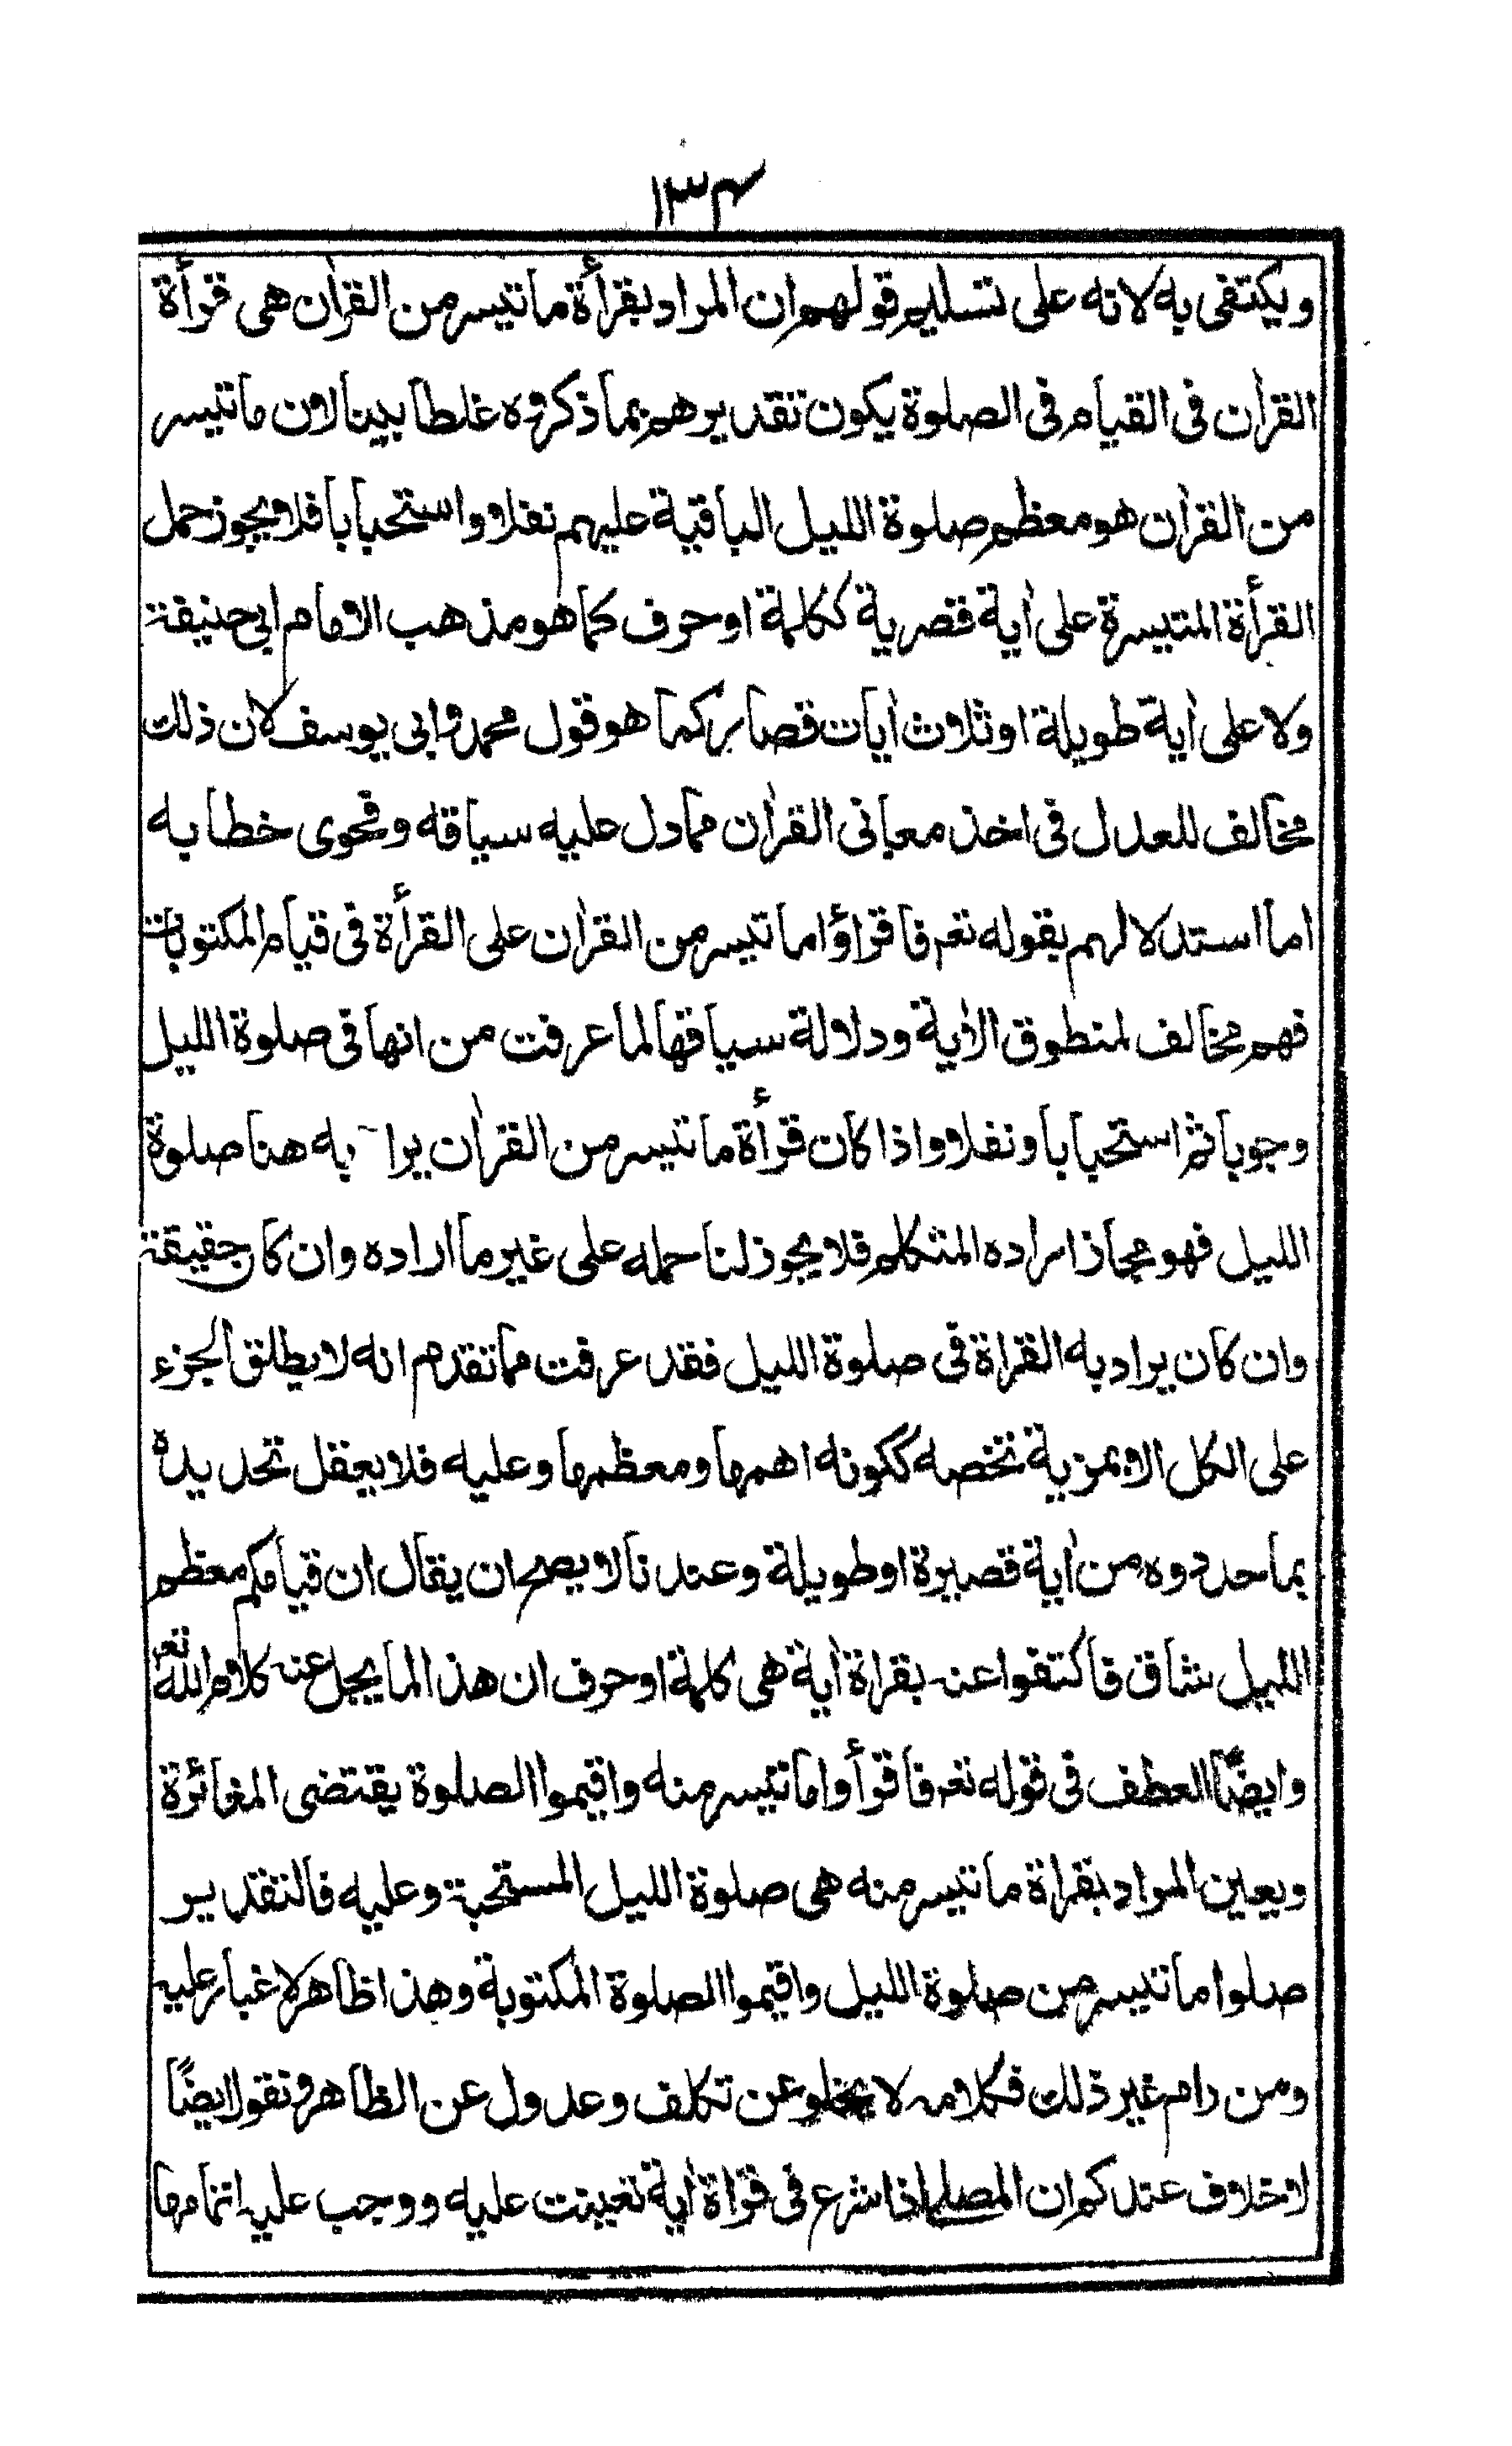 ١٣٤
ويكتفى به لانه على تسليم قولهم ان المراد بقرأءة ما تيسر من القرأن هى قرأة
القرأن فى القيام فى الصلوة يكون تقديرهم بما ذكروه غلطا بينا لان ما تيسر
من القرأن هو معظم صلوة الليل الباقية عليهم نفلا واستحبابا فلا يجوز حمل
القرأة المتيسرة على أية قصرية ككلمة او حرف كما هو مذهب الامام ابى حنيفة
ولا على أية طويلة او ثلاث أيات قصار كما هو قول محمد وابى يوسف لان ذلك
مخالف للعدل فى اخذ معانى القرأن مما دل عليه سياقه وفحوى خطابه
اما استدلالهم بقوله تعم فاقرأوا ما تيسر من القرأن على القرأءة فى قيام المكتوبات
فهم مخالف لمنطوق الأية ودلالة سياقها لما عرفت من انها فى صلوة الليل
وجوبا ثم استحبابا ونفلا واذا كان قرأءة ما تيسر من القرأن يرا به هنا صلوة
الليل فهو مجاز اراده المتكلم فلا يجوز لنا حمله على غير ما اراده وان كان حقيقة
وان كان يراد به القراة فى صلوة الليل فقد عرفت مما تقدم انه لا يطلق الجزء
على الكل الا بمزية تخصه ككونه اهمها ومعظمها وعليه فلا يعقل تحديده
بما حددوه من أية قصيرة او طويلة وعندنا لا يصح ان يقال ان قيامكم معظم
الليل شاق فاكتفوا عنه بقراة أية هى كلمة او حرف ان هذا لما يجل عنه كلام الله تعم
وايضًا العطف فى قوله تعم فاقرأوا ما تيسر منه واقيموا الصلوة يقتضى المغائرة
ويعين المراد بقراة ما تيسر منه هى صلوة الليل المستحبة وعليه فالتقدير
صلوا ما تيسر من صلوة الليل واقيموا الصلوة المكتوبة وهذا ظاهر لا غبار عليه
ومن رام غير ذلك فكلامه لا يخلو عن تكلف وعدول عن الظاهر ونقول ايضًا
لا خلاف عندكم ان المصلى اذا شرع فى قرأة أية تعينت عليه ووجب عليه اتمامها